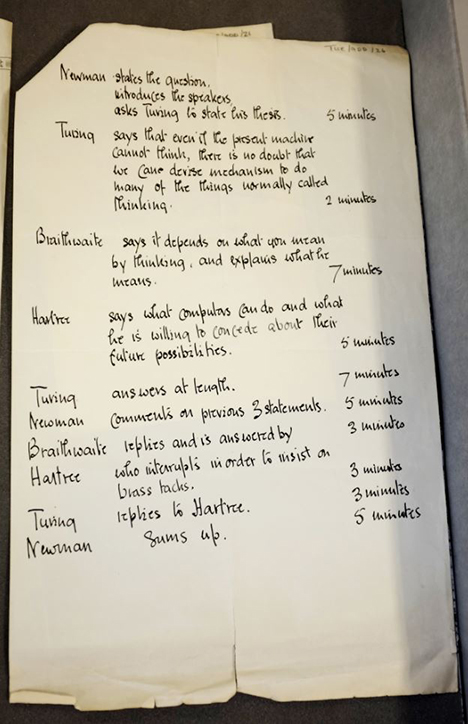 TUR/900/26
Newman states the question,
introduces the speakers,
asks Turing to state his thesis. 5 minutes
Turing says that even if the present machine
cannot think, there is no doubt that
we cane devise mechanism to do
many of the things normally called
thinking. 2 minutes
Braithwaite says it depends on what you mean
by thinking, and explains what he
means. 7 minutes
Hartree says what computers can do and what
he is willing to concede about their
future possibilities. 5 minutes
Turing answers at length. 7 minutes
Newman comments on previous 3 statements. 5 minutes
Braithwaite replies and is answered by 3 minutes
Hartree who interrupts in order to insist on
brass tacks. 3 minutes
Turing replies to Hartree. 3 minutes
Newman sums up. 5 minutes